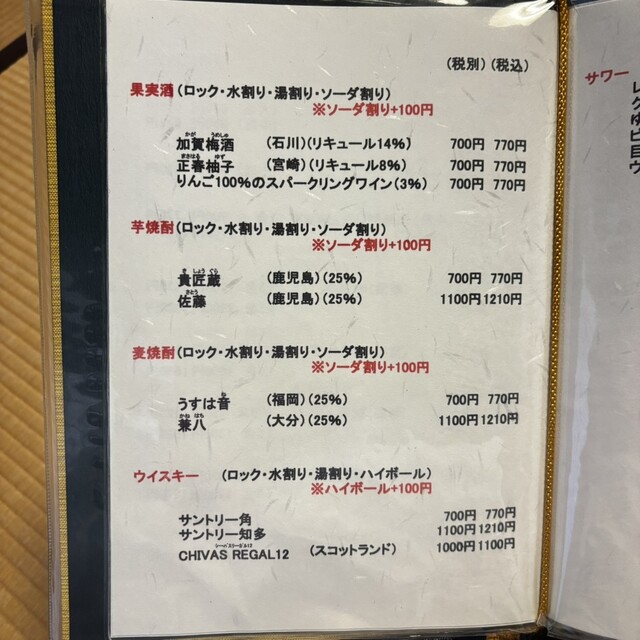 (税別)(税込)
果実酒(ロック・水割り・湯割り・ソーダ割り)
※ソーダ割り+100円
加賀梅酒 (石川)(リキュール14%) 700円 770円
正春柚子 (宮崎)(リキュール8%) 700円 770円
りんご100%のスパークリングワイン(3%) 700円 770円
芋焼酎(ロック・水割り・湯割り・ソーダ割り)
※ソーダ割り+100円
貴匠蔵 (鹿児島)(25%) 700円 770円
佐藤 (鹿児島)(25%) 1100円 1210円
麦焼酎(ロック・水割り・湯割り・ソーダ割り)
※ソーダ割り+100円
うすは音 (福岡)(25%) 700円 770円
兼八 (大分)(25%) 1100円 1210円
ウイスキー (ロック・水割り・湯割り・ハイボール)
※ハイボール+100円
サントリー角 700円 770円
サントリー知多 1100円 1210円
CHIVAS REGAL12 (スコットランド) 1000円 1100円
サワー